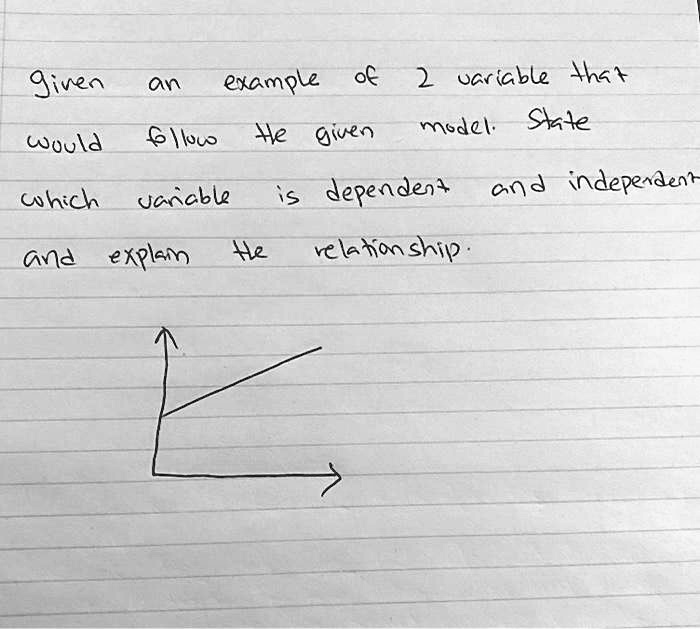 given an example of 2 variable that
would follow the given model. State
which variable is dependent and independent
and explain the relationship.